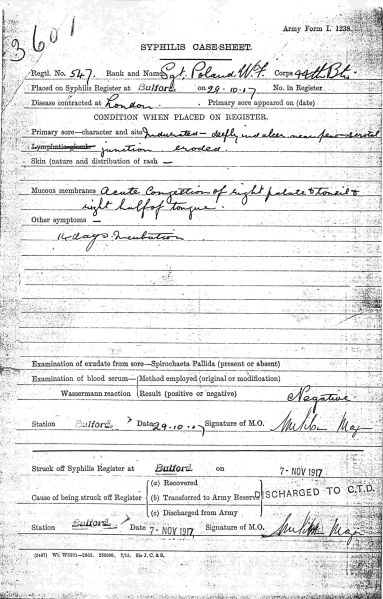 3601
Army Form I. 1238.
SYPHILIS CASE-SHEET.
Regtl. No. 547. Rank and Name Sgt. Poland W.F. Corps 44th Btn
Placed on Syphilis Register at Bulford on 29.10.17 No. in Register
Disease contracted at London. Primary sore appeared on (date)
CONDITION WHEN PLACED ON REGISTER.
Primary sore—character and site Indurated – deep ulcer near peno-scrotal
Lymphatic glands junction eroded.
Skin (nature and distribution of rash —
Mucous membranes Acute Congestion of right palate & tonsil &
right half of tongue.
Other symptoms —
14 days Incubation
Examination of exudate from sore—Spirochaeta Pallida (present or absent)
Examination of blood serum— Method employed (original or modification)
Wassermann reaction Result (positive or negative) Negative
Station Bulford Date 29.10.17 Signature of M.O. Major
Struck off Syphilis Register at Bulford on 7 - NOV 1917
(a) Recovered
Cause of being struck off Register (b) Transferred to Army Reserve DISCHARGED TO C.T.D.
(c) Discharged from Army
Station Bulford Date 7 - NOV 1917 Signature of M.O. Major